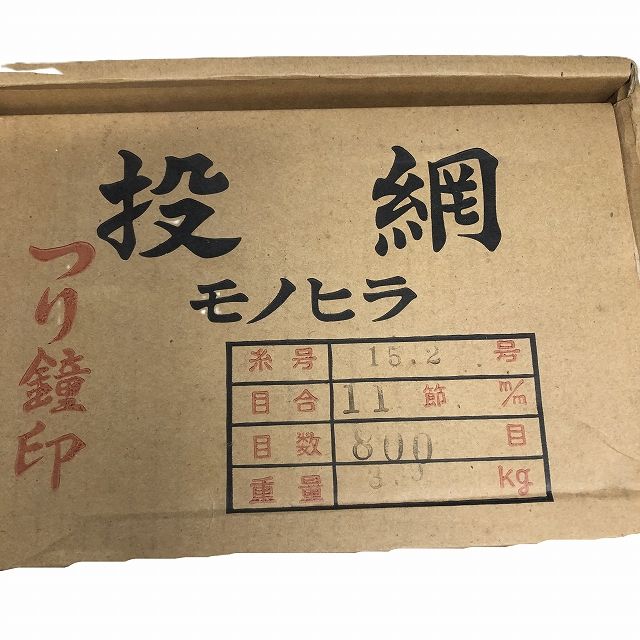 投網
モノヒラ
つり鐘印
糸号 15.2 号
目合 11 節 m/m
目数 800 目
重量 kg